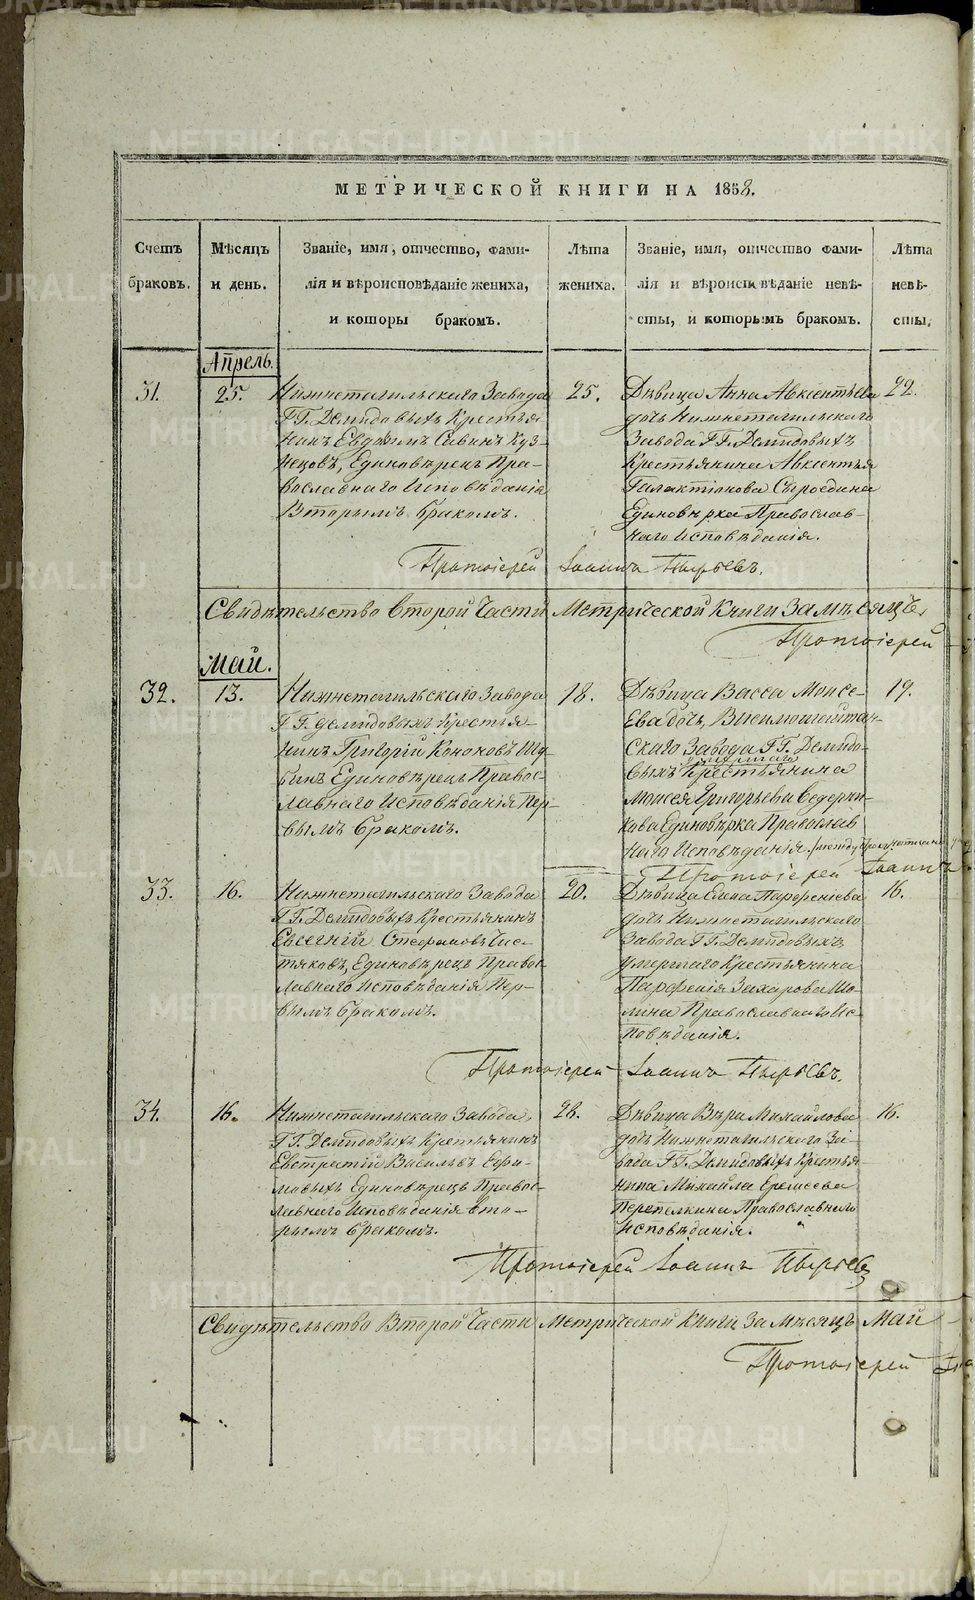 МЕТРИЧЕСКОЙ КНИГИ НА 1858.
Счетъ
браковъ.
Мѣсяцъ
и день.
Званіе, имя, отчество, фами-
лія и вѣроисповѣданіе жениха,
и которы бракомъ.
Лѣта
жениха.
Званіе, имя, отчество фами-
лія и вѣроиси вѣданіе невѣ-
сты, и которымъ бракомъ.
Лѣта
невѣ-
сты.
Апрель.
31.
25.
Нижнетагильскаго Завода
ГГ. Демидовыхъ Крестья
нинъ Евдокимъ Савинъ Куз-
нецовъ, Единовѣрецъ Пра-
вославнаго Исповѣданія
Вторымъ бракомъ.
25.
Дѣвица Анна Авксентьева
дочь Нижнетагильскаго
Завода ГГ. Демидовыхъ
Крестьянина Авксентья
Галактіонова Сыроедина
Единовѣрка Православ-
наго Исповѣданія.
22.
Протоіерей Іоаннъ Пырьевъ.
Свидѣтельство Второй Части Метрической Книги За мѣсяцъ
Протоіерей
Май.
32.
13.
Нижнетагильскаго Завода
ГГ. Демидовыхъ Крестья-
нинъ Григорій Кононовъ Шу
бинъ Единовѣрецъ Правос-
лавнаго Исповѣданія Пер-
вымъ бракомъ.
18.
Дѣвица Васса Моисе-
ева дочь, Висимошайтан-
скаго Завода ГГ. Демидо-
выхъ умершаго Крестьянина
Моисея Григорьева
Единовѣрка Православ
наго Исповѣданія.
19.
Протоіерей Іоаннъ
33.
16.
Нижнетагильскаго Завода
ГГ. Демидовыхъ Крестьянинъ
Евсегній Стефановъ Чис-
тяковъ, Единовѣрецъ Правос
лавнаго Исповѣданія Пер-
вымъ бракомъ.
20.
Дѣвица Елена Парфеніева
дочь Нижнетагильскаго
Завода ГГ. Демидовыхъ
умершаго Крестьянина
Парфенія Захарова Шо-
лина Православнаго Ис-
повѣданія.
16.
Протоіерей Іоаннъ Пырьевъ.
34.
16.
Нижнетагильскаго Завода
ГГ. Демидовыхъ Кретьянинъ
Евстратій Васильевъ Ефи-
мовыхъ Единовѣрецъ Правос-
лавнаго Исповѣданія Вто-
рымъ бракомъ.
28.
Дѣвица Вѣра Михайлова
дочь Нижнетагильскаго За-
вода ГГ. Демидовыхъ Крестья
нина Михайла Еремеева
Перепелкина Православнаго
Исповѣданія.
16.
Протоіерей Іоаннъ Пырьевъ
Свидѣтельство Второй Части Метрической Книги За Мѣсяцъ Май
Протоіерей
METRIKI.GASO-URAL.RU